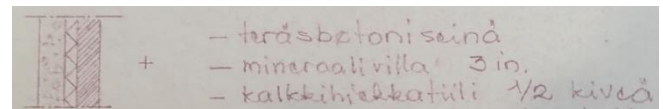 + – teräsbetoniseinä
– mineraalivilla 3 in.
– kalkkihiekkatiili 1/2 kiveä